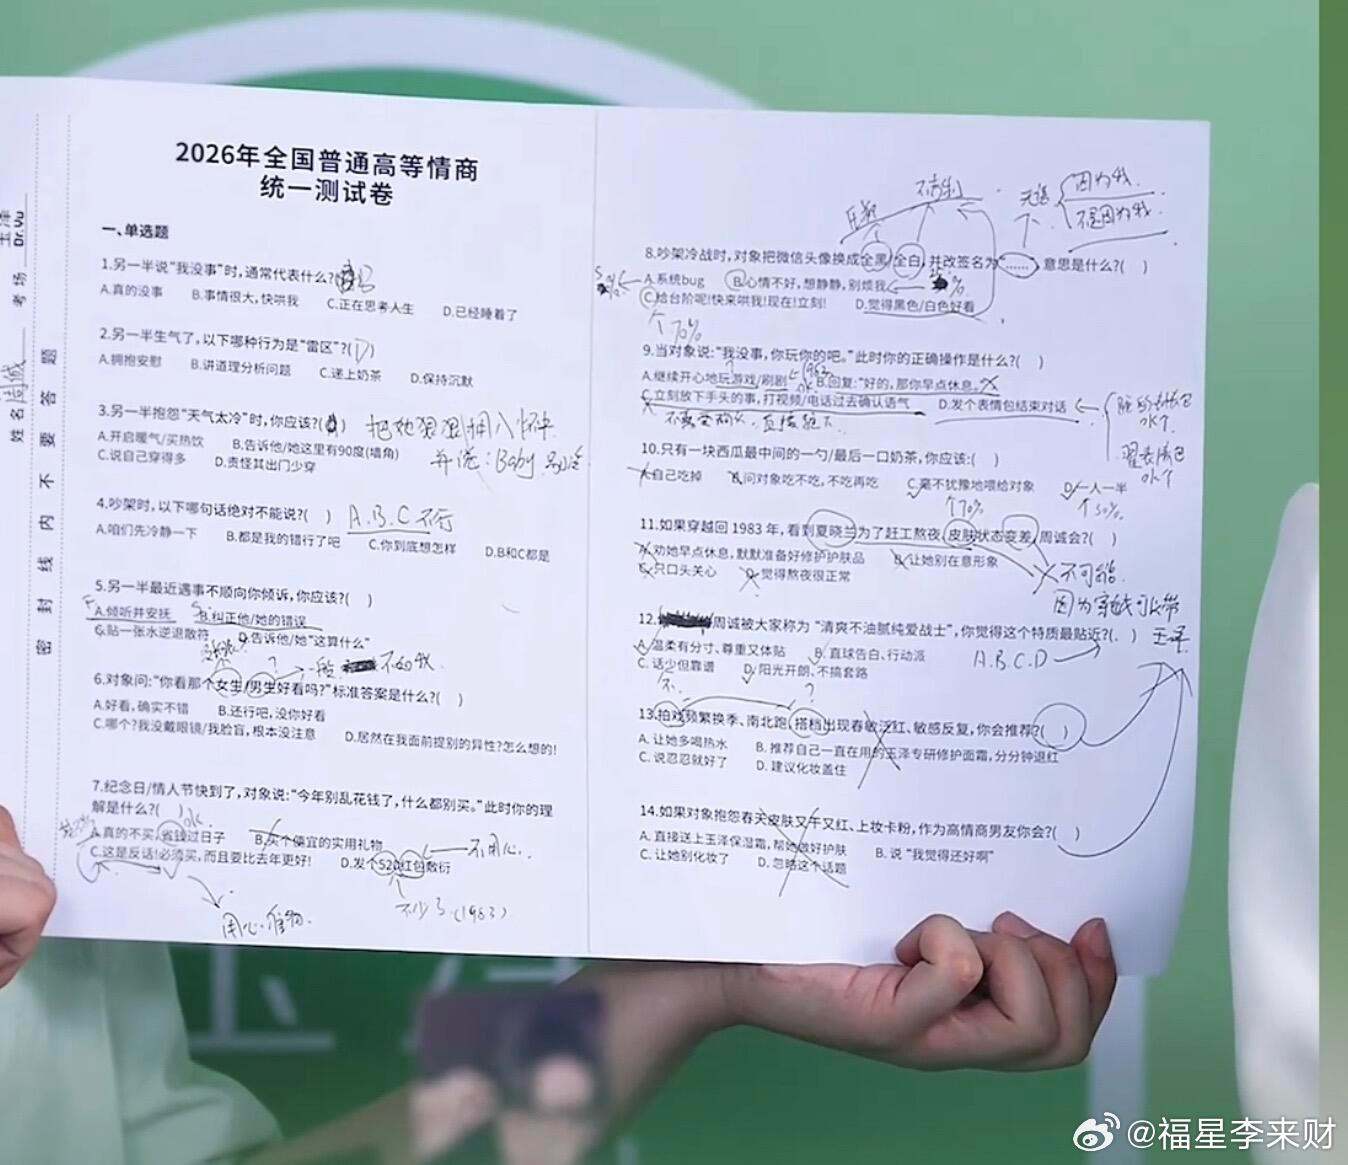 2026年全国普通高等情商
统一测试卷
玉泽
Dr.Yu
考场
姓名
周诚
密封线内不要答题
一、单选题
1.另一半说“我没事”时,通常代表什么?
A.真的没事 B.事情很大,快哄我 C.正在思考人生 D.已经睡着了
2.另一半生气了,以下哪种行为是“雷区”?(D)
A.拥抱安慰 B.讲道理分析问题 C.递上奶茶 D.保持沉默
3.另一半抱怨“天气太冷”时,你应该?( )
把她狠狠拥入怀中
A.开启暖气/买热饮 B.告诉他/她这里有90度(墙角)
并说:Baby 别冷
C.说自己穿得多 D.责怪其出门少穿
4.吵架时,以下哪句话绝对不能说?( ) A.B.C不行
A.咱们先冷静一下 B.都是我的错行了吧 C.你到底想怎样 D.B和C都是
5.另一半最近遇事不顺向你倾诉,你应该?( )
A.倾听并安抚 B.纠正他/她的错误
C.贴一张水逆退散符 D.告诉他/她“这算什么”
? 一般 不如我
6.对象问:“你看那个女生/男生好看吗?”标准答案是什么?( )
A.好看,确实不错 B.还行吧,没你好看
C.哪个?我没戴眼镜/我脸盲,根本没注意 D.居然在我面前提别的异性?怎么想的!
7.纪念日/情人节快到了,对象说:“今年别乱花钱了,什么都别买。”此时你的理
解是什么?( ) ok.
A.真的不买,省钱过日子 B.买个便宜的实用礼物
C.这是反话!必须买,而且要比去年更好! D.发个520红包敷衍
不用心.
用心准备.
不少了(1983)
因为我.
不是因为我.
8.吵架冷战时,对象把微信头像换成全黑/全白,并改签名为“......”意思是什么?( )
A.系统bug B.心情不好,想静静,别烦我
C.给台阶呢!快来哄我!现在!立刻! D.觉得黑色/白色好看
70%
9.当对象说:“我没事,你玩你的吧。”此时你的正确操作是什么?( )
A.继续开心地玩游戏/刷剧 B.回复:“好的,那你早点休息。”
C.立刻放下手头的事,打视频/电话过去确认语气 D.发个表情包结束对话
10.只有一块西瓜最中间的一勺/最后一口奶茶,你应该:( )
A.自己吃掉 B.问对象吃不吃,不吃再吃 C.毫不犹豫地喂给对象 D.一人一半
70% 50%
11.如果穿越回1983年,看到夏晓兰为了赶工熬夜,皮肤状态变差,周诚会?( )
A.劝她早点休息,默默准备好修护护肤品 B.让她别在意形象
C.只口头关心 D.觉得熬夜很正常
不可能.
12.周诚被大家称为“清爽不油腻纯爱战士”,你觉得这个特质最贴近?( ) 玉泽
A.温柔有分寸、尊重又体贴 B.直球告白、行动派 A.B.C.D
C.话少但靠谱 D.阳光开朗、不搞套路
13.拍戏频繁换季、南北跑,搭档出现春敏泛红、敏感反复,你会推荐?( )
A.让她多喝热水 B.推荐自己一直在用的玉泽专研修护面霜,分分钟退红
C.说忍忍就好了 D.建议化妆盖住
14.如果对象抱怨春天皮肤又干又红、上妆卡粉,作为高情商男友你会?( )
A.直接送上玉泽保湿霜,帮她做好护肤 B.说“我觉得还好啊”
C.让她别化妆了 D.忽略这个话题
@福星李来财